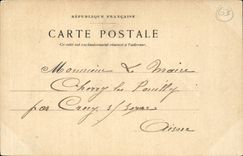 RÉPUBLIQUE FRANÇAISE
CARTE POSTALE
Ce côté est exclusivement réservé à l'adresse.
Monsieur Le Maire
Chery les Pouilly
par Crecy s/ Serre
Aisne